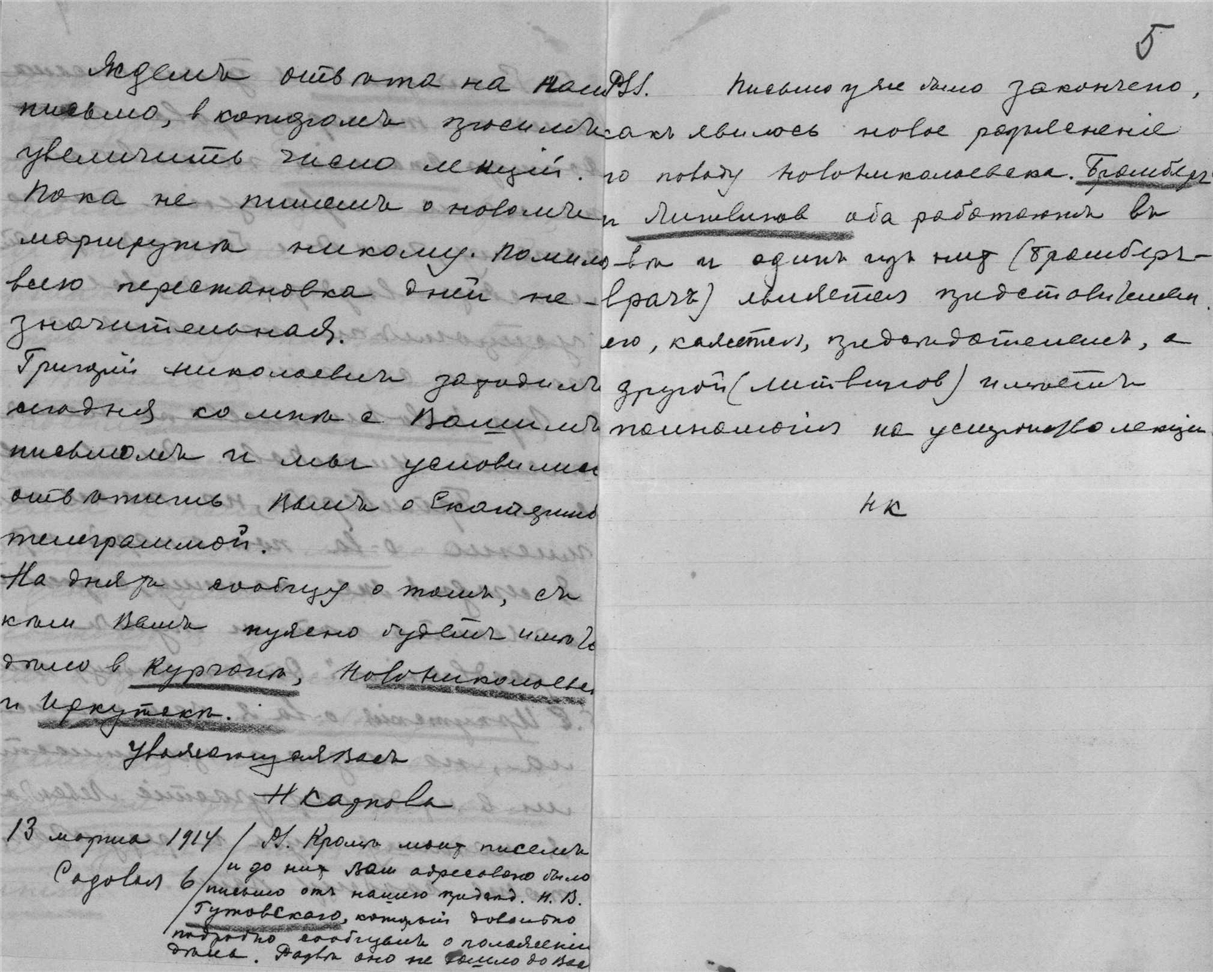 Ждемъ отвѣта на наш
письмо, в которомъ просимъ
увеличить число лекций.
Пока не пишемъ о новомъ
маршрутѣ никому. Помимо
всего перестановка дней не-
значительная.
Григорій Николаевичъ заходилъ
сегодня ко мнѣ с Вашимъ
письмомъ и мы условились
отвѣтить Вамъ о Екатерин
телеграммой.
На дняхъ сообщу о томъ, съ
кѣмъ Вамъ нужно будетъ имѣть
дѣло в Курганѣ, Новониколаевск
и Иркутскѣ.
Уважающая Васъ
Н Карпова
13 марта 1914
Садовая 6
PS. Кромѣ моих писемъ
и до них Вам адресовано было
письмо отъ нашего предсѣд. Н. В.
Гутовского, который довольно
подробно сообщалъ о положеніи
дѣла. Развѣ оно не дошло до Вас
5
PSS. Письмо уже было закончено,
какъ явилось новое разъясненіе
по поводу Новониколаевска. Брамберг
и Литвинов оба работаютъ въ
о-вѣ и одинъ изъ них (Брамберъ-
врачъ) является представителем
его, кажется, предсѣдателемъ, а
другой (Литвинов) имѣетъ
полномочія на лекціи
НК